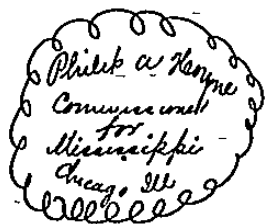 Philip A Hoyne
Commissioner
for
Mississippi
Chicago, Ill